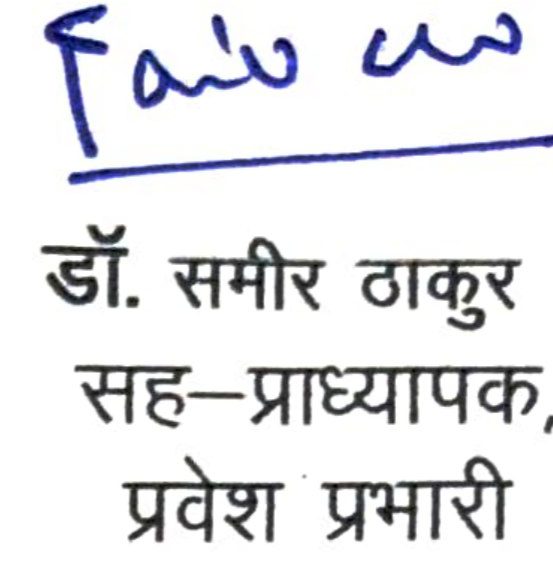 डॉ. समीर ठाकुर
सह–प्राध्यापक,
प्रवेश प्रभारी